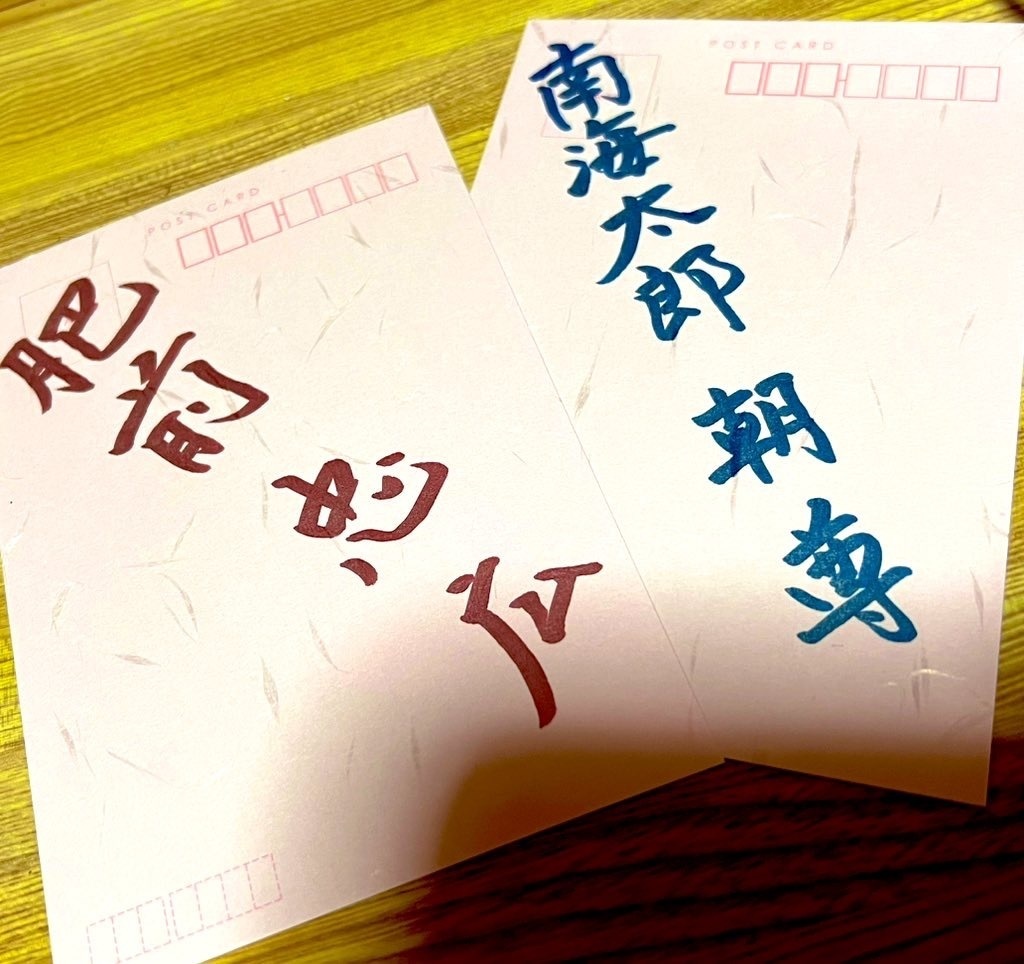 POST CARD
肥前
忠広
POST CARD
南海太郎
朝尊